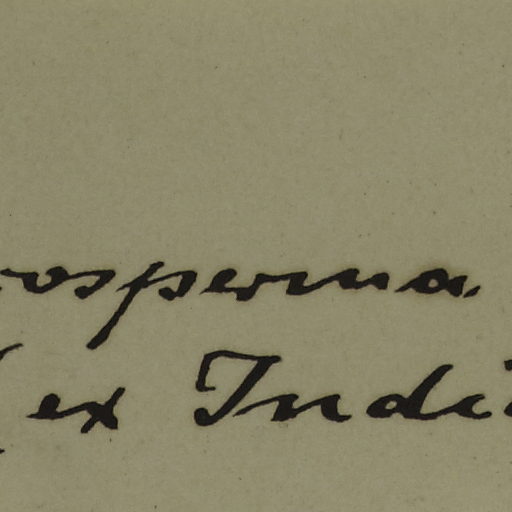 osperma.
(ex Indi